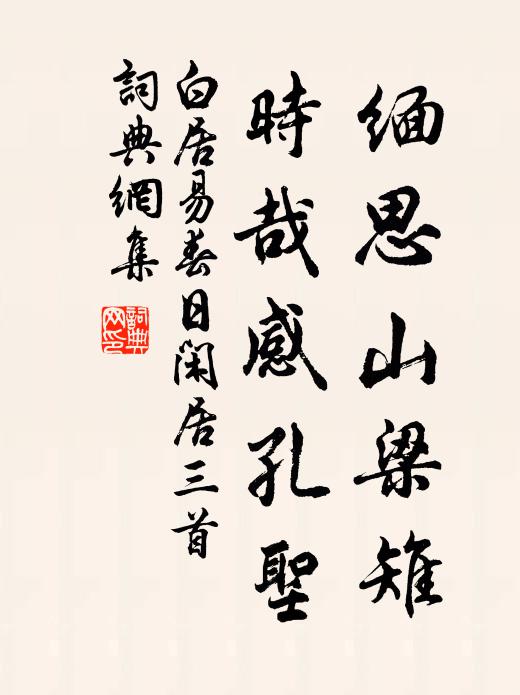 缅思山梁雉
時哉感孔聖
白居易春日閑居三首
詞典網集
詞典网印